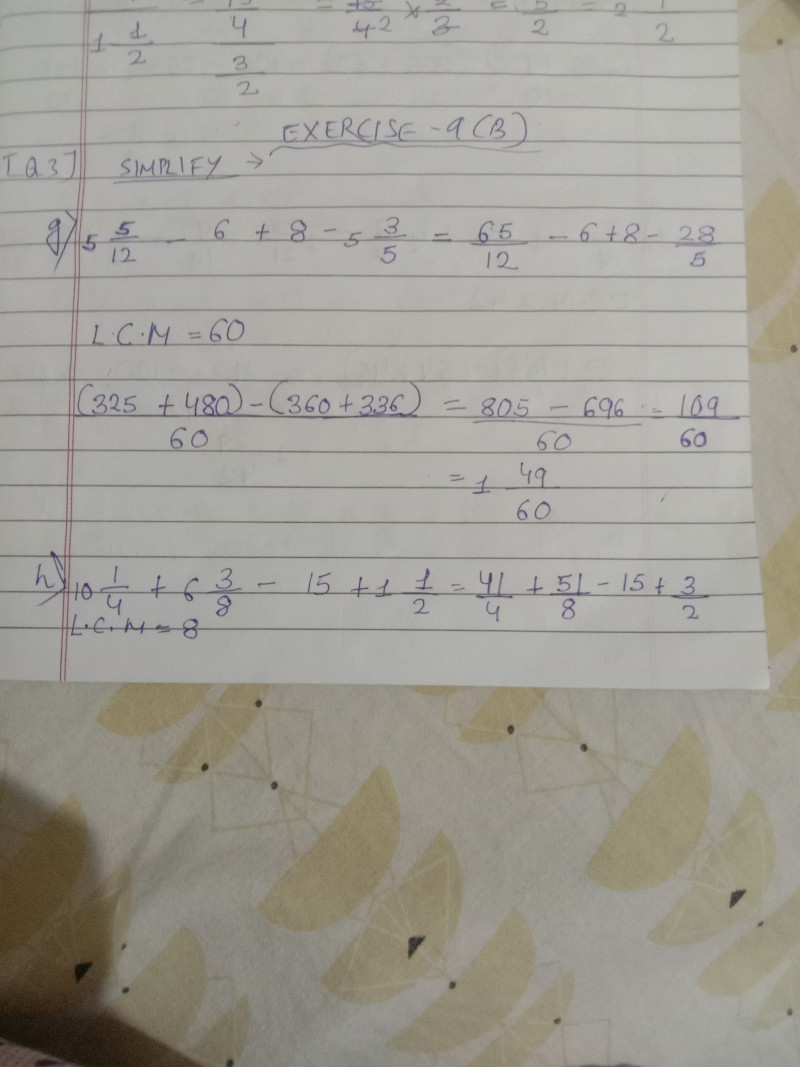 1 1/2 = 15/4 / 3/2 = 15/42 × 2/3 = 5/2 = 2 1/2
EXERCISE - 9 (B)
[Q3] SIMPLIFY →
g) 5 5/12 - 6 + 8 - 5 3/5 = 65/12 - 6 + 8 - 28/5
L.C.M = 60
(325 + 480) - (360 + 336) / 60 = 805 - 696 / 60 = 109/60
= 1 49/60
h) 10 1/4 + 6 3/8 - 15 + 1 1/2 = 41/4 + 51/8 - 15 + 3/2
L.C.M = 8